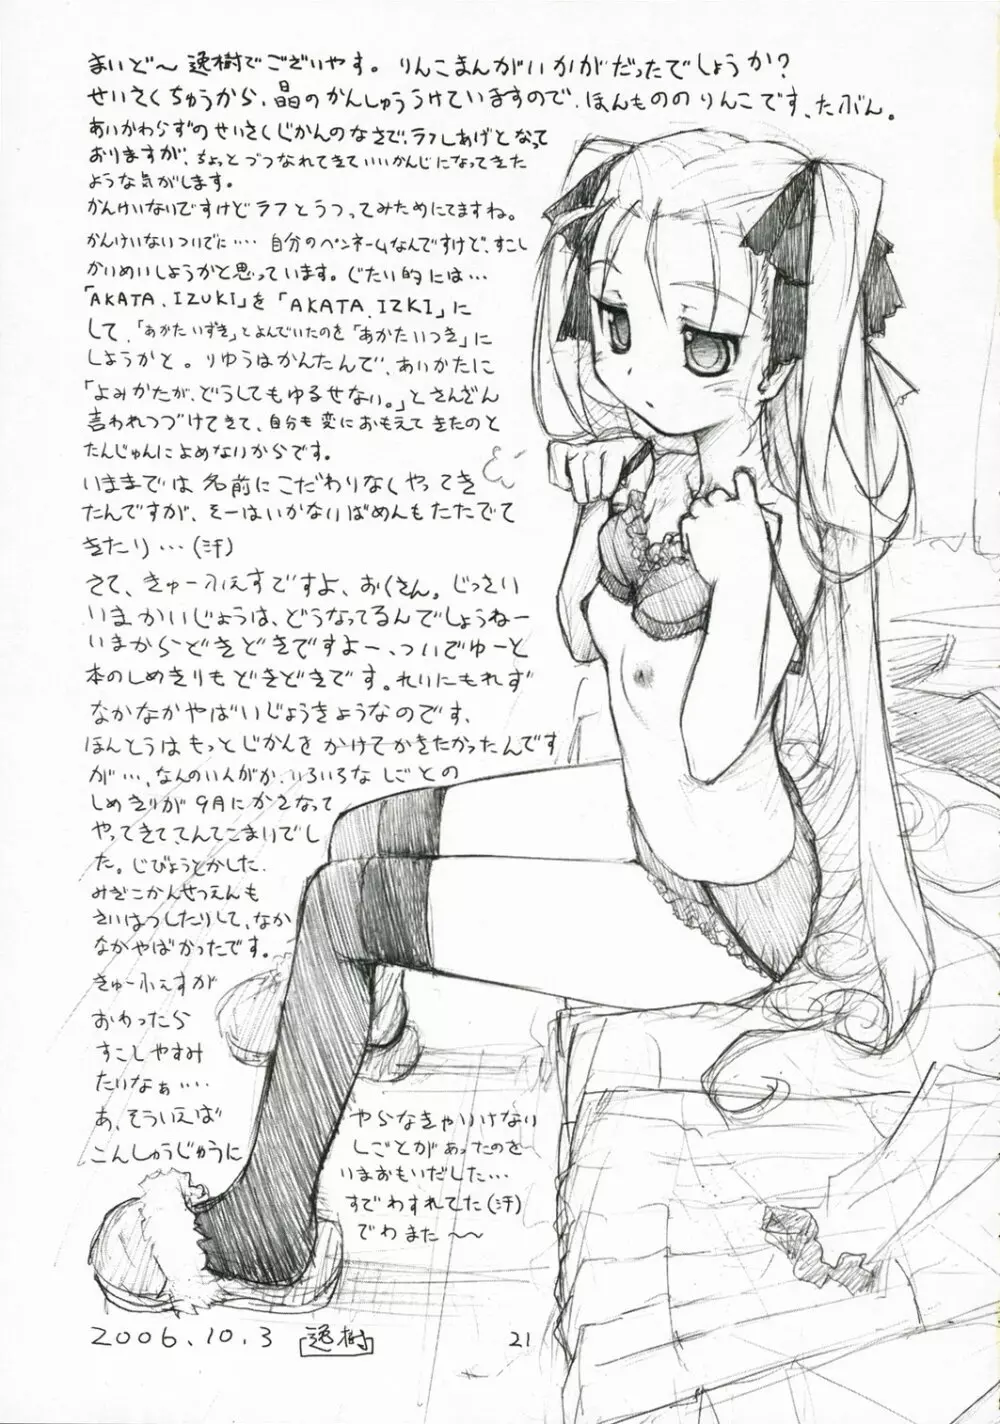 まいど〜逸樹でございやす。りんこまんがいかがだったでしょうか?
せいさくちゅうから、晶のかんしゅううけていますので、ほんもののりんこです、たぶん。
あいかわらずのせいさくじかんのなさで、ラフしあげとなって
おりますが、ちょっとづつなれてきていいかんじになってきた
ような気がします。
かんけいないですけどラフとうつってみためにてますね。
かんけいないついでに‥‥ 自分のペンネームなんですけど、すこし
かいめいしようかと思っています。ぐたい的には…
「AKATA.IZUKI」を「AKATA.IZKI」に
して、「あかたいずき」とよんでいたのを「あかたいつき」に
しようかと。りゆうはかんたんで、あいかたに
「よみかたが、どうしてもゆるせない。」とさんざん
言われつづけてきて、自分も変におもえてきたのと
たんじゅんによめないからです。
いままでは名前にこだわりなくやってき
たんですが、そーはいかないばめんもたたでて
きたり…(汗)
さて、きゅーふぇすですよ、おくさん。じっさい
いまかいじょうは、どうなってるんでしょうねー
いまからどきどきですよー、ついでゆーと
本のしめきりもどきどきです。れいにもれず
なかなかやばいじょうきょうなのです、
ほんとうはもっとじかんをかけてかきたかったんです
が…、なんのいんがか、いろいろなしごとの
しめきりが9月にかさなって
やってきて、てんてこまいでし
た。じびょうとかした、
みぎこかんせつえんも
さいはつしたりして、なか
なかやばかったです。
きゅーふぇすが
おわったら
すこしやすみ
たいなぁ‥‥
あ、そういえば
こんしゅうじゅうに
やらなきゃいけない
しごとがあったのを
いまおもいだした…
すでわすれてた(汗)
でわまた〜〜
2006.10.3 逸樹
21